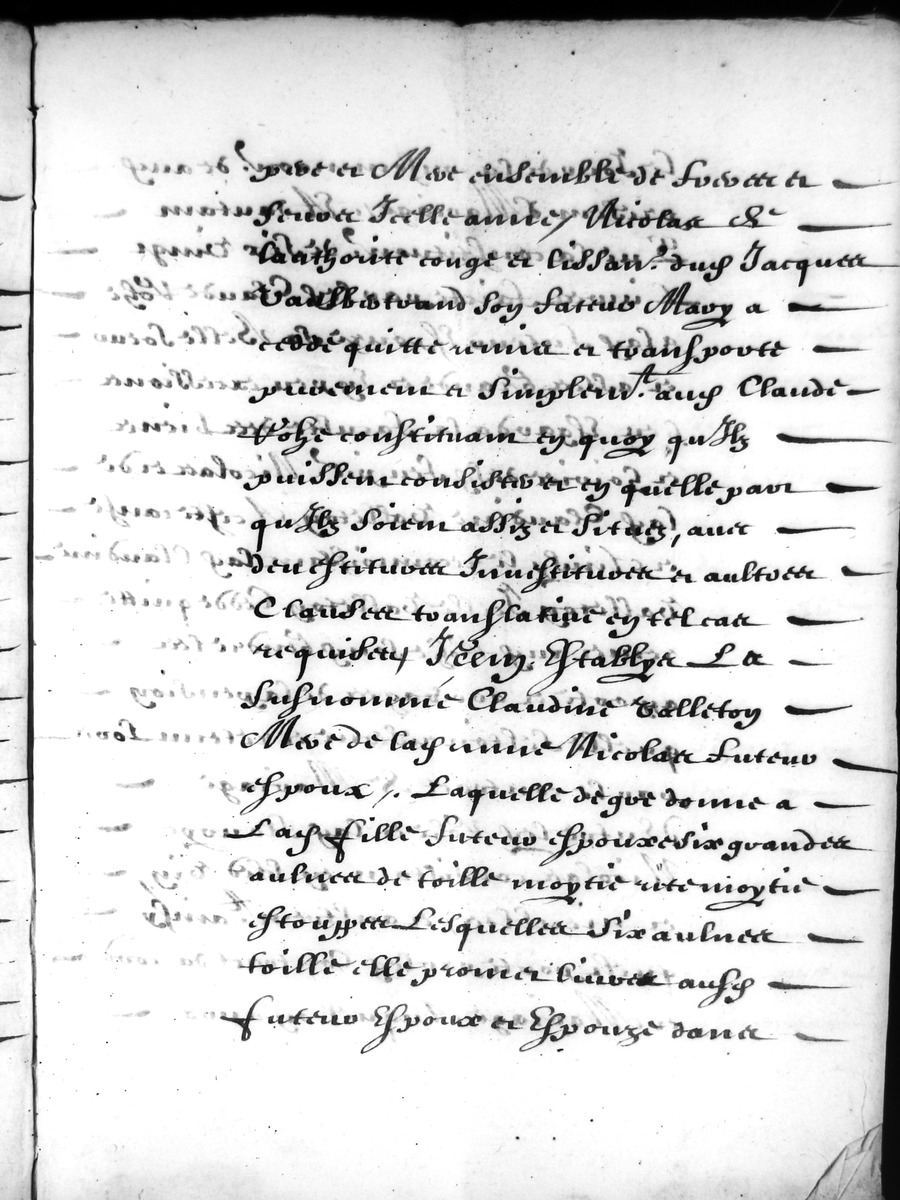 pere et Mere ensemble de freres et
seures Icelle anne / Nicolas &c
lauthorite conge et licsan.e dud Jacques
Vaulbertrand son futeur Mary a
cedde quitte remis et transporte
purement et simplem.t aud Claude
constituant en quoy quIlz
puissent consister et en quelle part
quIlz soient assiz et situez, aues
deuestitures Inuestitures et aultres
Clauses translatiue en tel cas
requises / Item Establye La
susnommé Claudine Valleton
Mere de lad anne Nicolas futeur
espoux /. Laquelle de gre donne a
Lad fille futeur espouxe six grandes
aulnes de toille moytie rite moytie
estouppes Lesquelles six aulnes
toille elle promet liurer ausd
futeur Espoux et Espouze dans